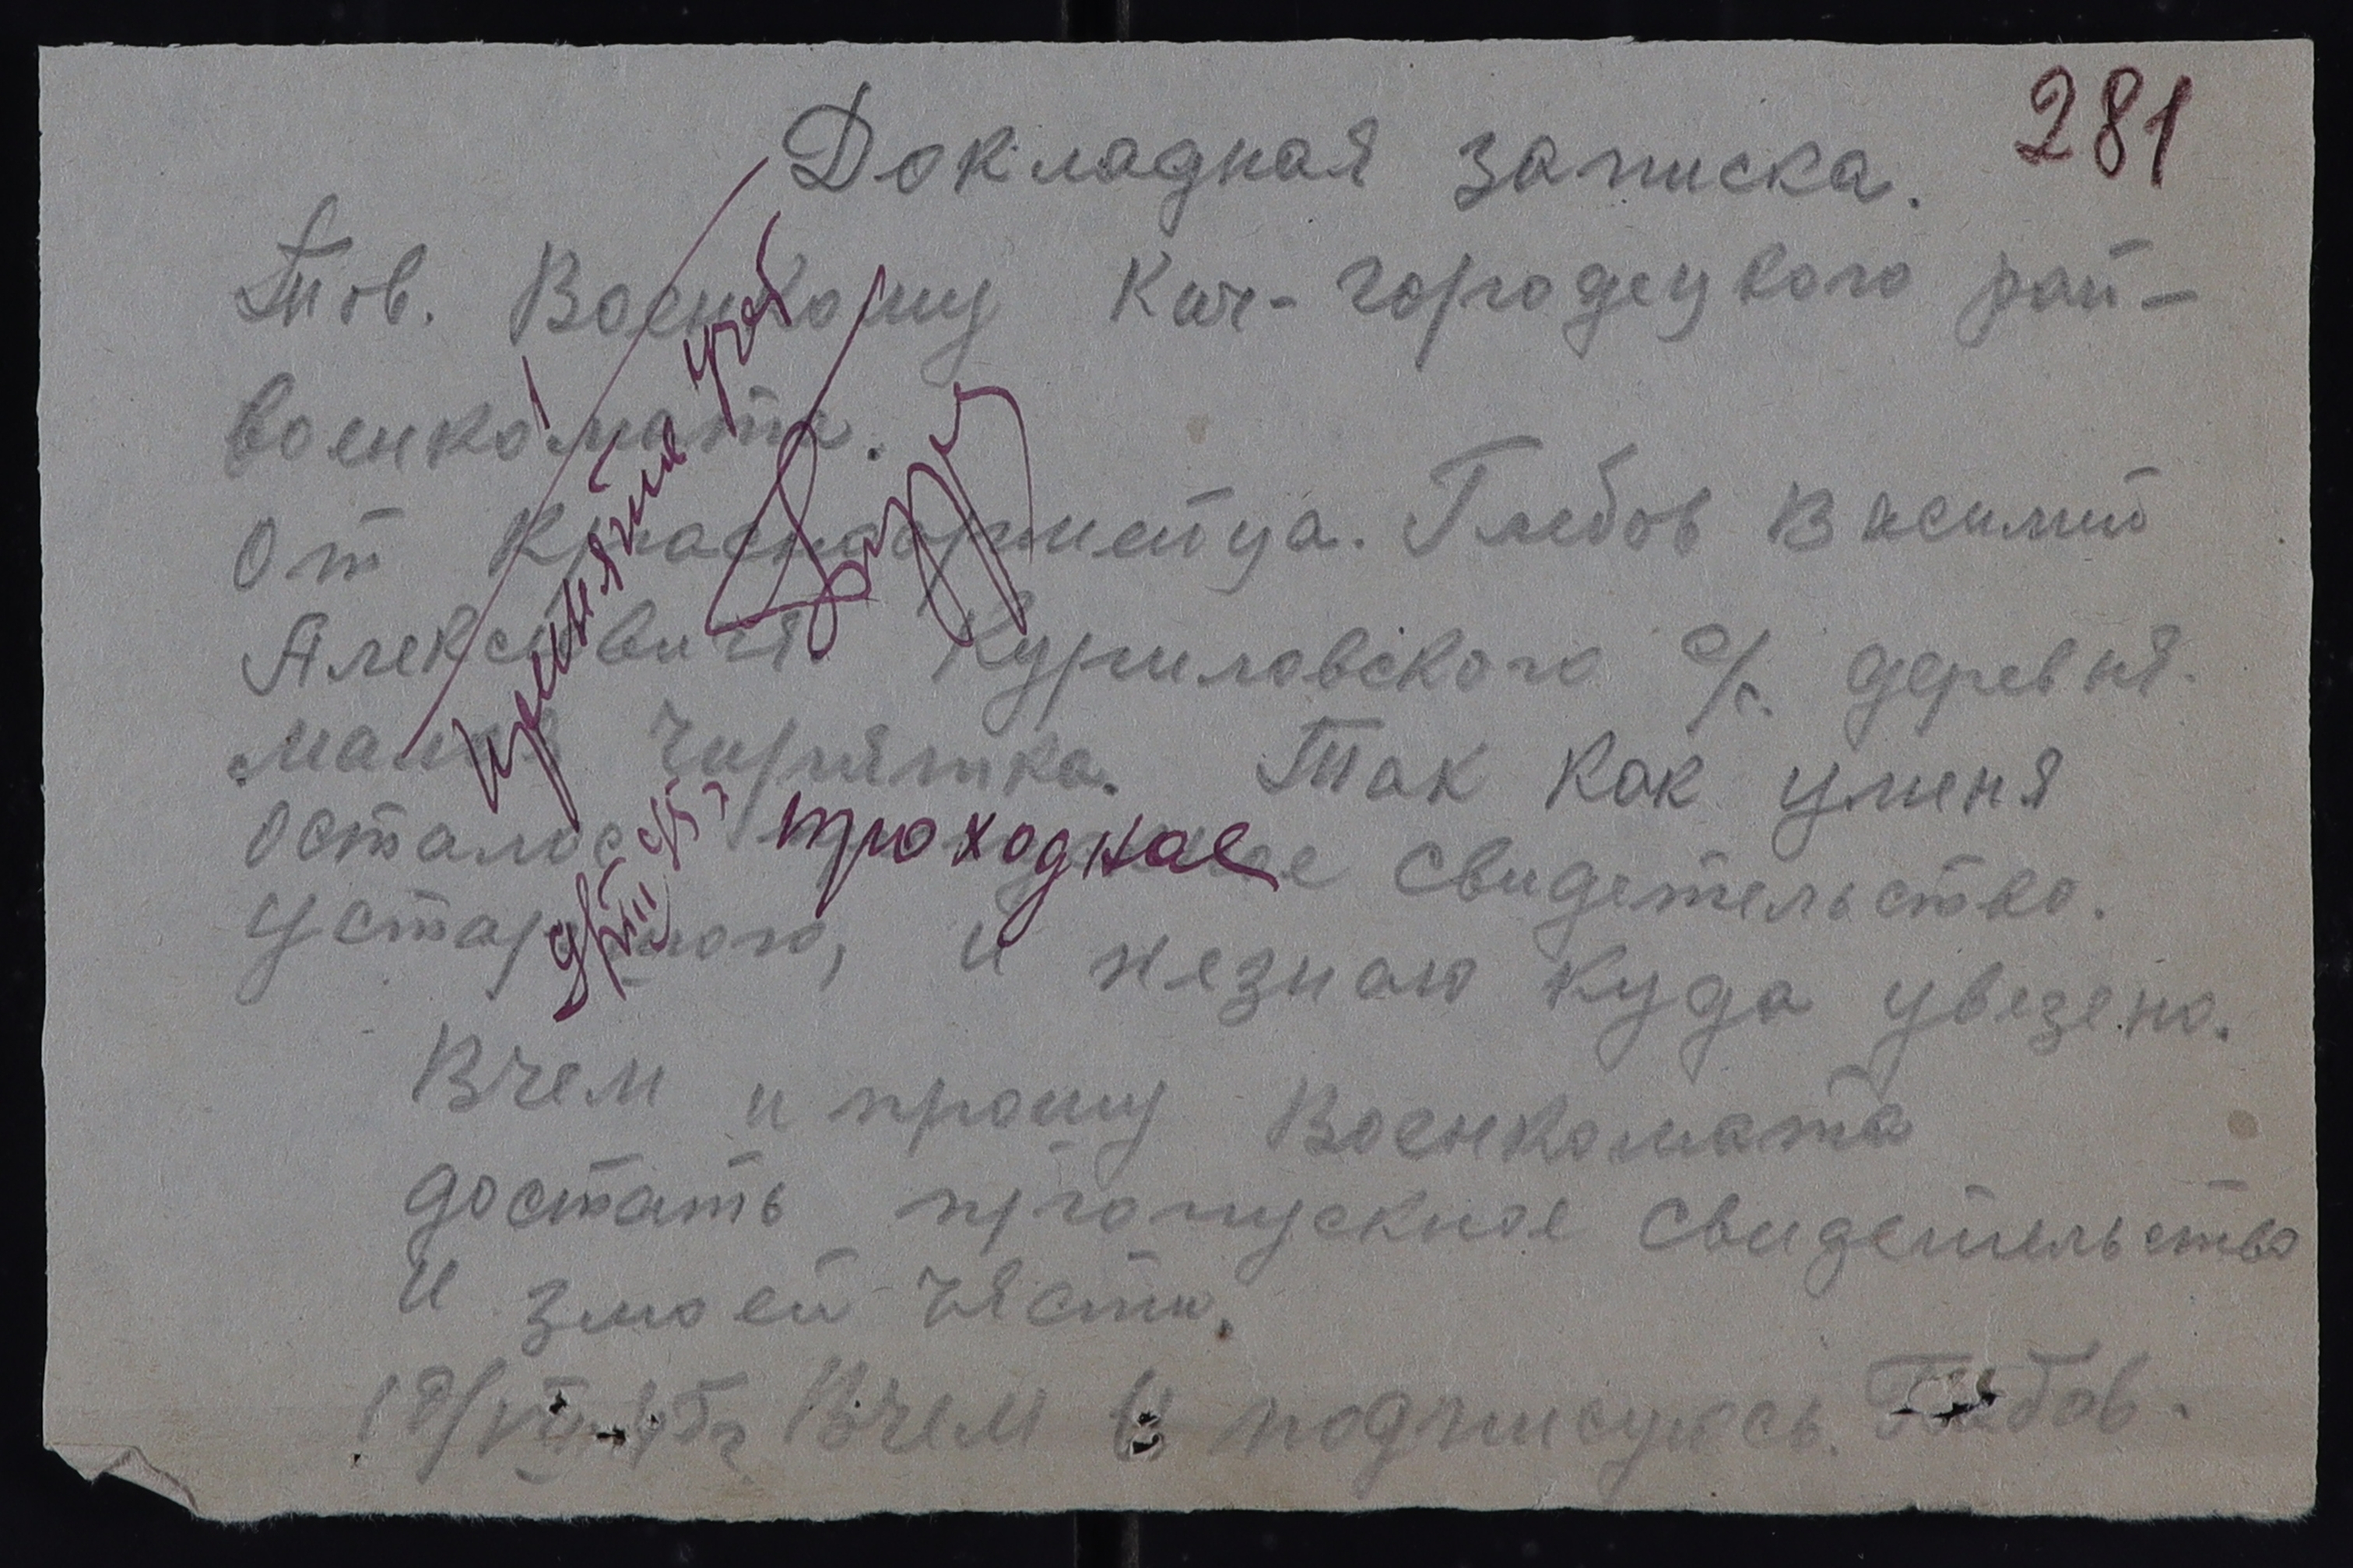 281
Докладная записка.
Тов. Военкому Кич-городецкого рай-
военкомата.
От Красноармейца. Глебов Василий
Алексевичя. Куриловского с/с. деревня.
малая Чирятка. Так как уменя
осталос проходное свидетельство.
устаршого, и незнаю куда увезено.
Вчем и прошу Военкомата
достать пропускное свидетельство
И змоей чясти.
18/VII-45г Вчем и подписуюсь. Глебов.